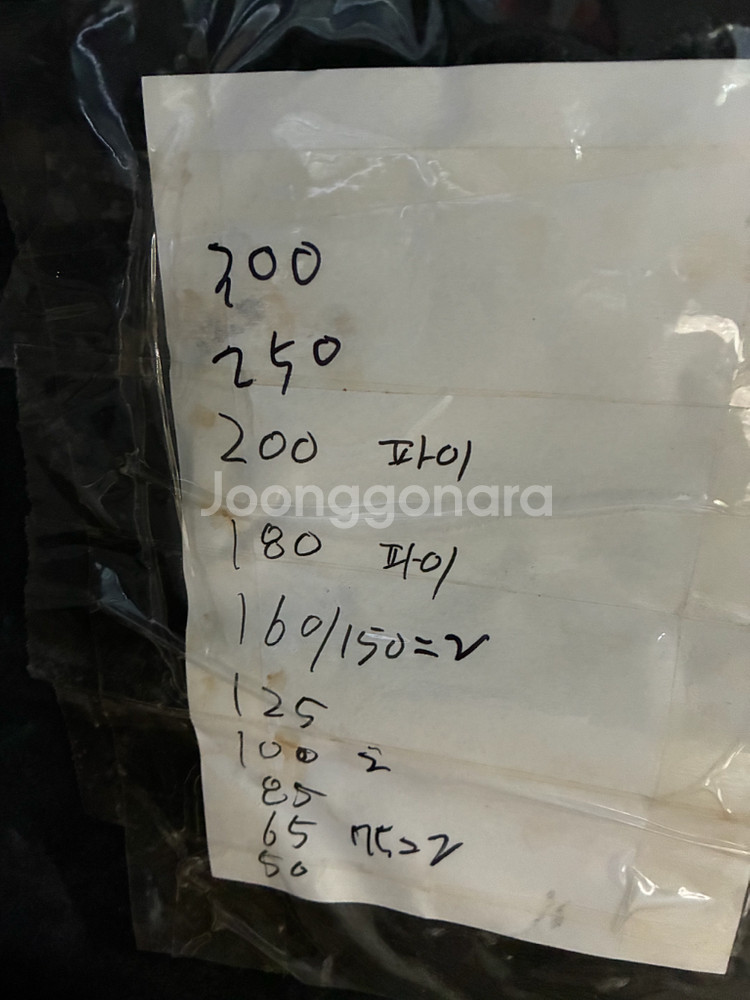 300
250
200 파이
Joonggonara
180 파이
160/150=2
125
100 2
85
65 75=2
50